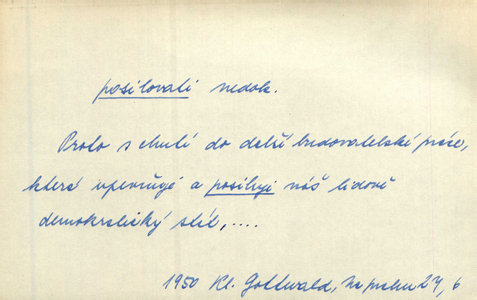 posilovati nedok.
Proto s chutí do další budovatelské práce,
která upevňuje a posiluje náš lidově
demokratický stát,....
1950 Kl. Gottwald, 27, 6